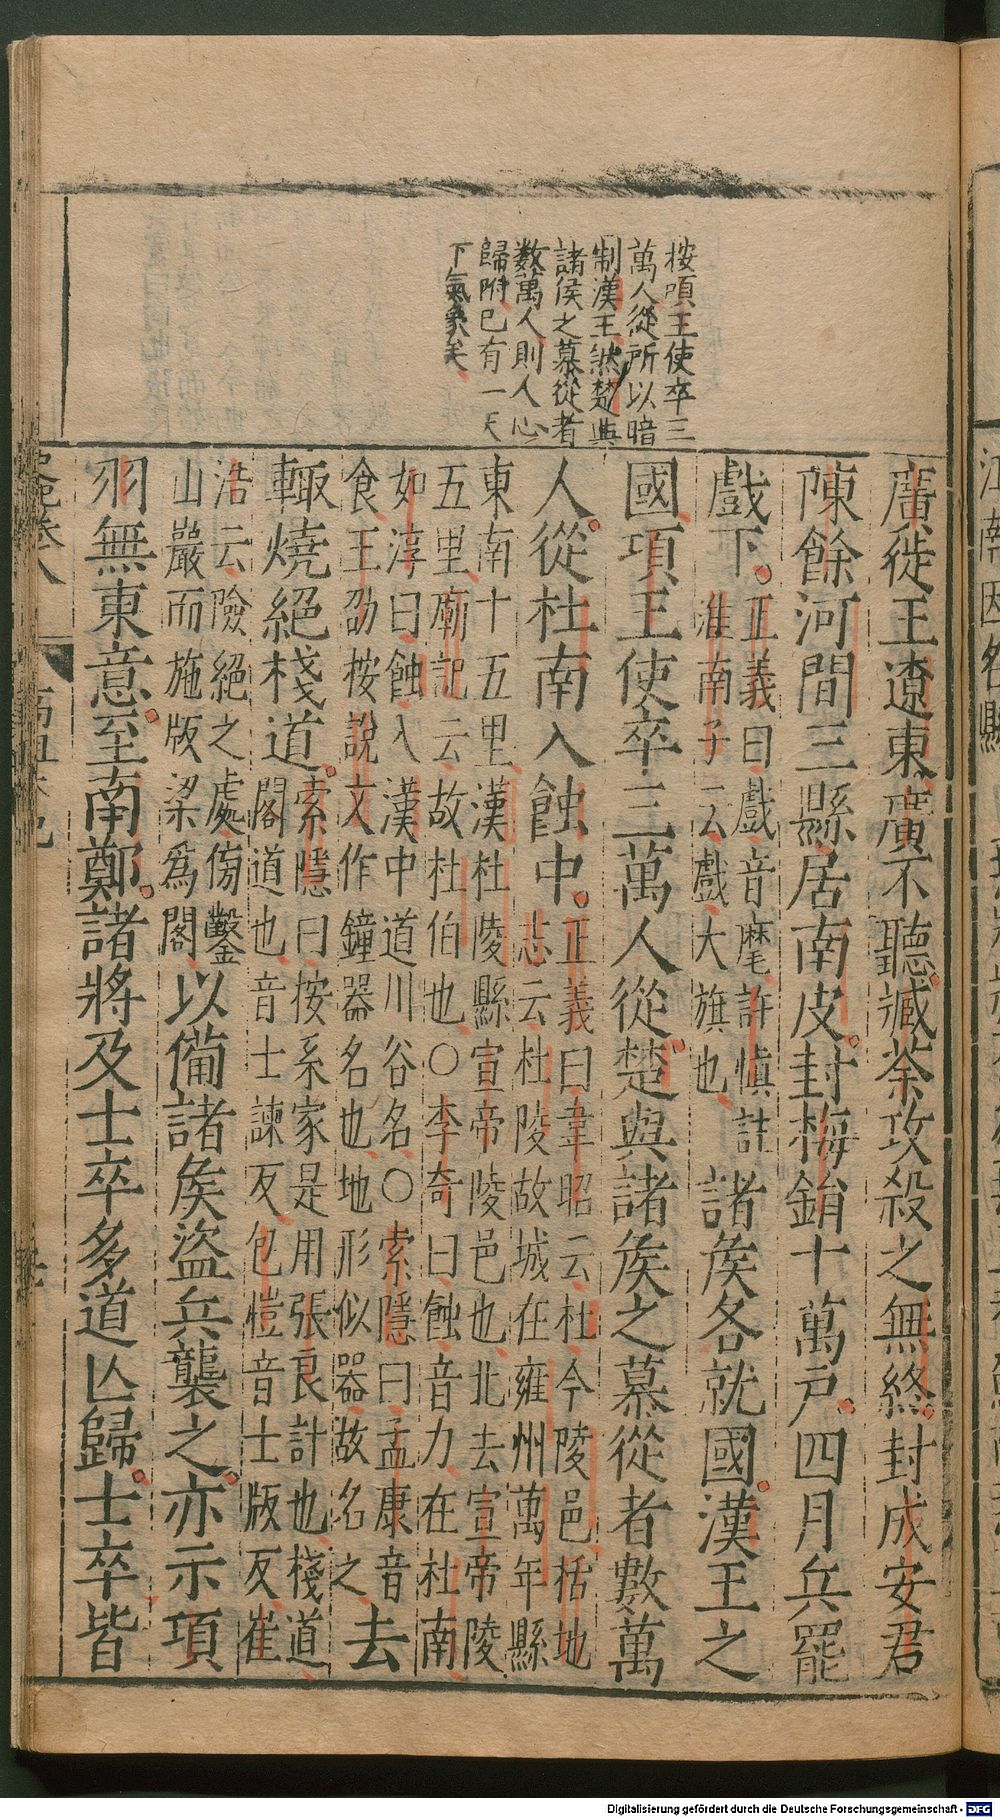 按項王使卒三
萬人從所以暗
制漢王然楚與
諸侯之慕從者
数萬人則人心
歸附已有一天
下氣象矣
廣徙王遼東廣不聽臧荼攻殺之無終封成安君
陳餘河間三縣居南皮封梅鋗十萬戶四月兵罷
戲下正義曰戲音麾許慎註
淮南子云戲大旗也諸矦各就國漢王之
國項王使卒三萬人從楚與諸矦之慕從者數萬
人從杜南入蝕中正義曰韋昭云杜今陵邑括地
志云杜陵故城在雍州萬年縣
東南十五里漢杜陵縣宣帝陵邑也北去宣帝陵
五里廟記云故杜伯也〇李奇曰蝕音力在杜南
如淳曰蝕入漢中道川谷名〇索隱曰孟康音
食王劭按說文作鐘器名也地形似器故名之去
輒燒絕棧道索隱曰按系家是用張良計也棧道
閣道也音士諫反包愷音士版反崔
浩云險絕之處傍鑿
山巖而施版梁爲閣以備諸矦盜兵襲之亦示項
羽無東意至南鄭諸將及士卒多道亾歸士卒皆
Digitalisierung gefördert durch die Deutsche Forschungsgemeinschaft - DFG